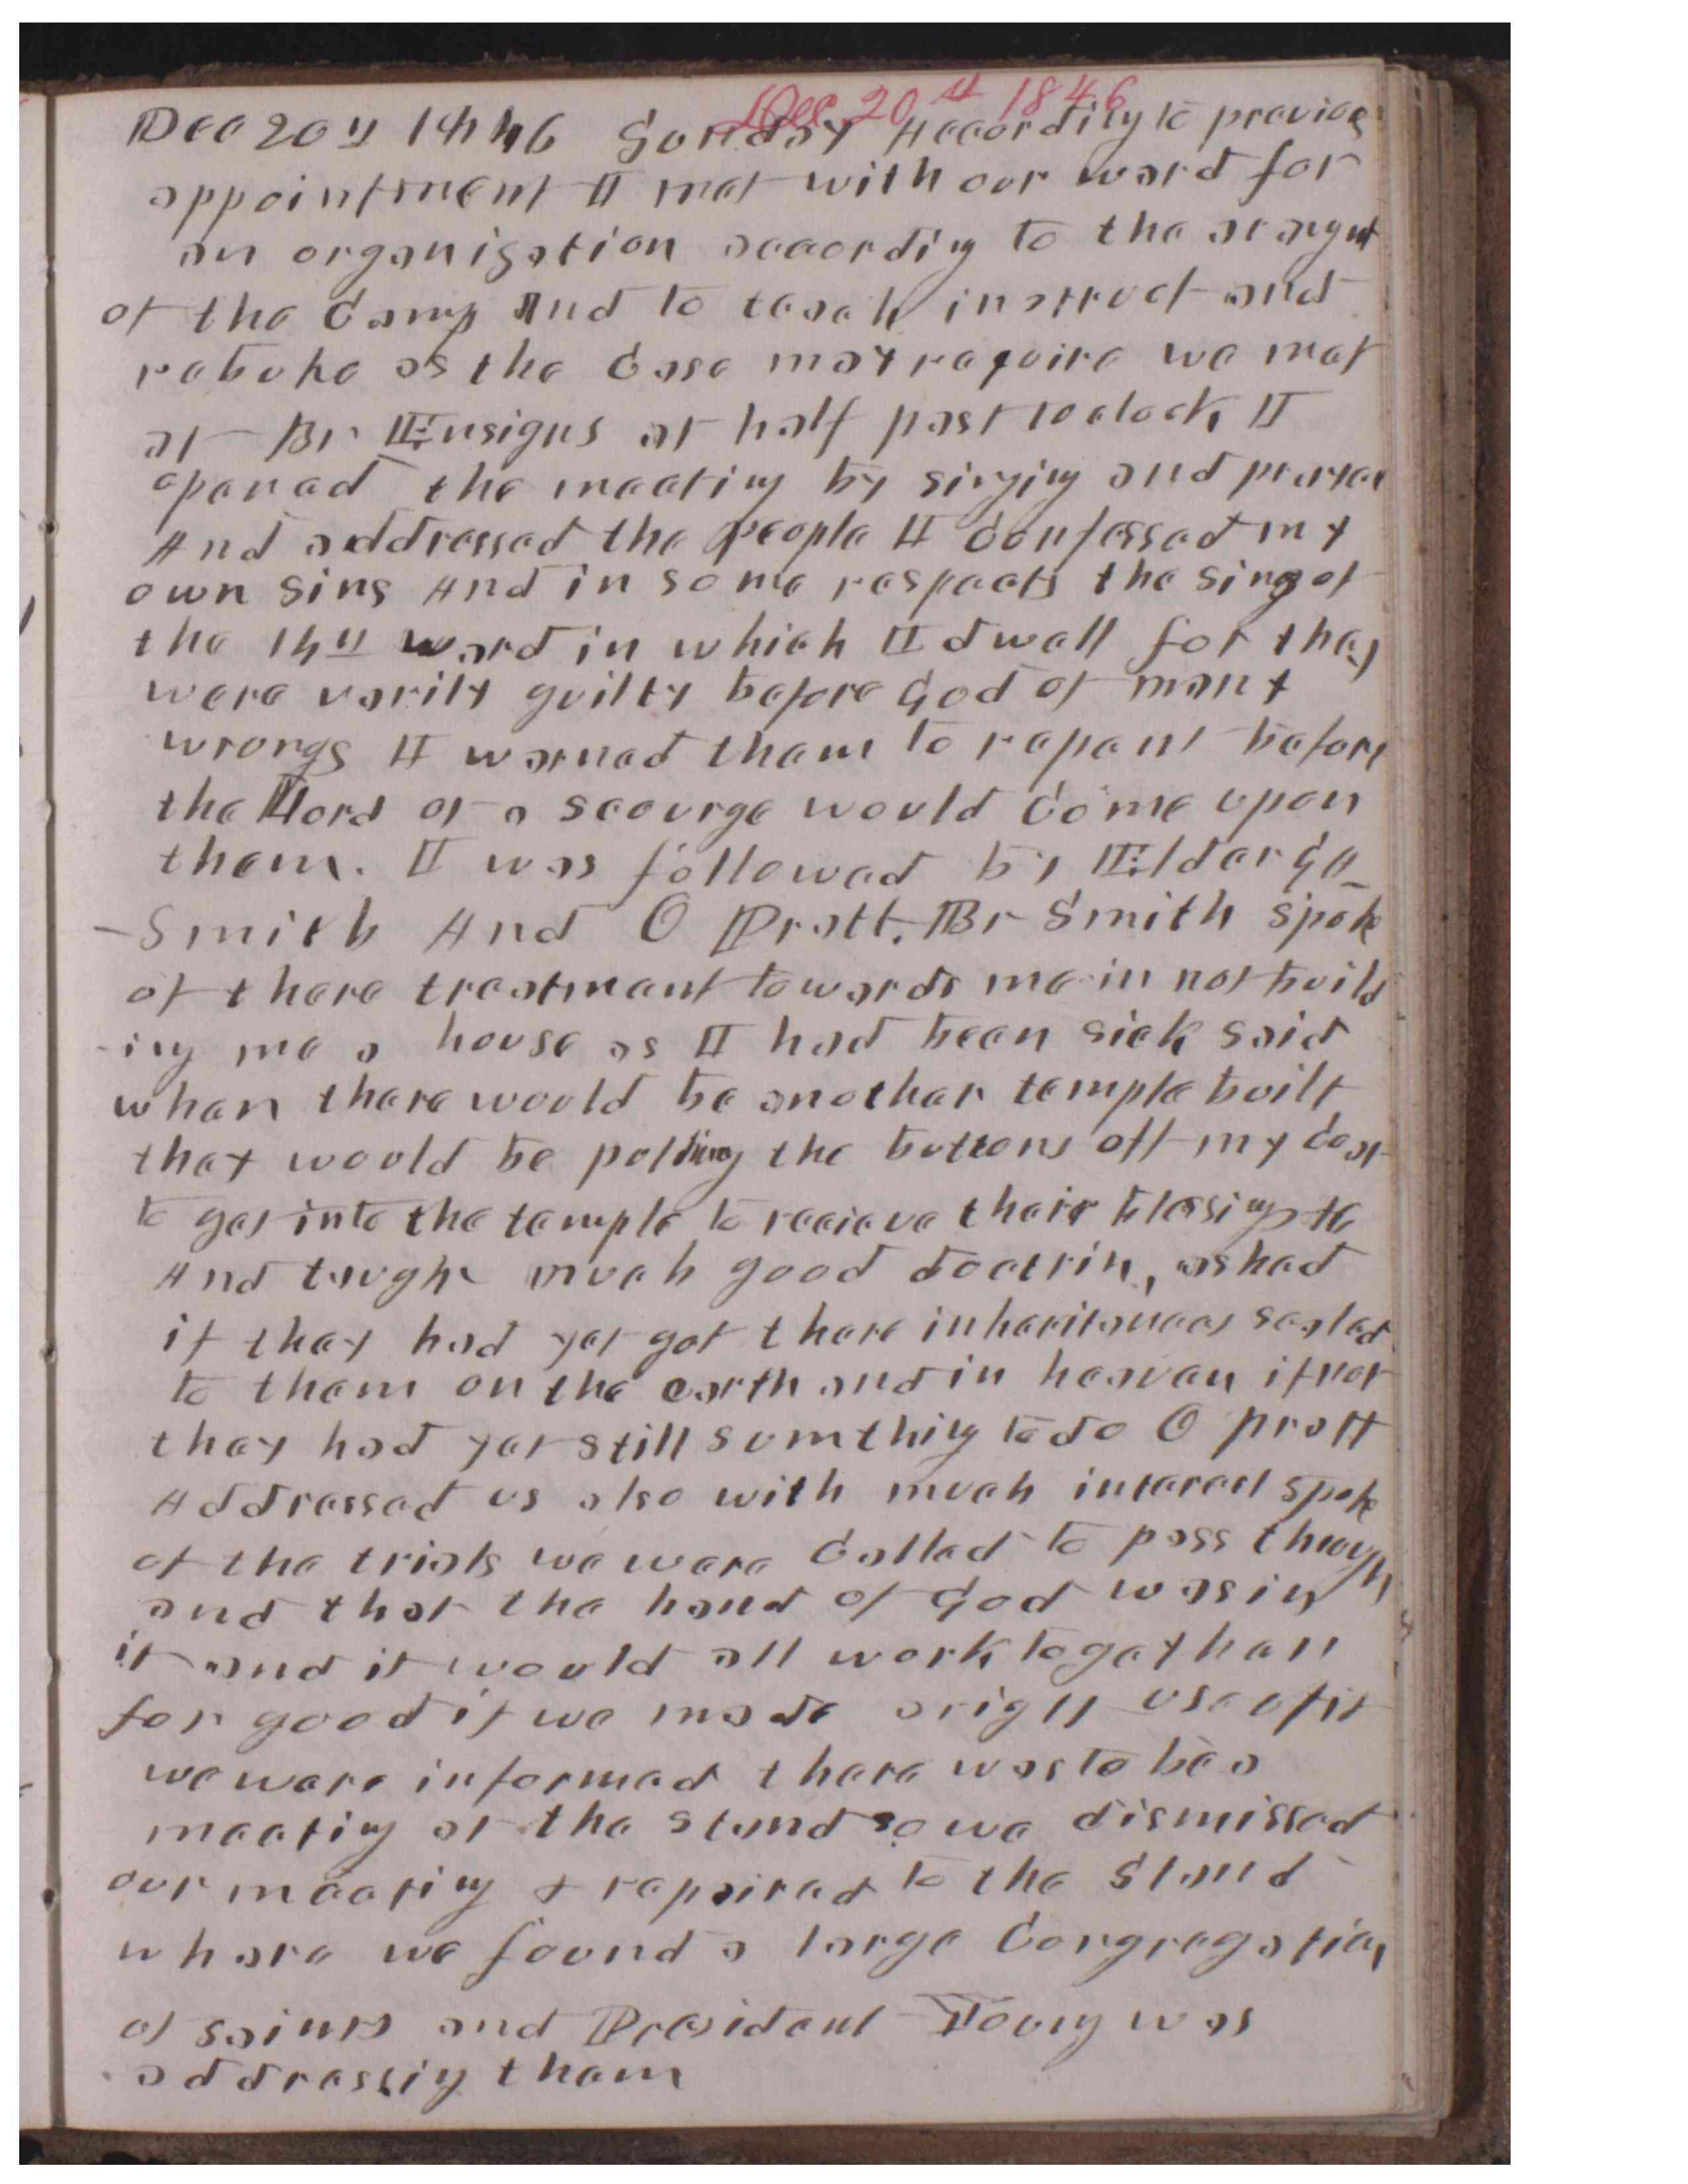 Dec 20th 1846
Dec 20th 1846 Sunday According to previous
appointment I met with our ward for
an organisation according to the arangmt
of the Camp And to teach instruct and
rebuke as the Case may require we met
at Br Ensigns at half past 10 oclock I
opened the meeting by singing and prayer
And addressed the people I Confessed my
own sins And in some respects the sins of
the 14th ward in which I dwell for they
were verily guilty before God of many
wrongs I warned them to repent before
the Lord or a scourge would Come upon
them. I was followed by Elder G A
- Smith And O Pratt. Br Smith spoke
of there treatment towards me in not build
-ing me a house as I had been sick said
when there would be another temple built
they would be pulling the buttons off my Coat
to get into the temple to recieve their blessings &c
And taught much good doctrin, asked
if they had yet got there inheritances sealed
to them on the earth and in heaven if not
they had yet still sumthing to do O Pratt
Addressed us also with much interest spoke
of the trials we were Called to pass through
and that the hand of God was in
it and it would all work together
for good if we made a right use of it
we were informed there was to be a
meeting at the stand so we dismissed
our meeting & repaired to the Stand
where we found a large Congregation
of saints and President Young was
addressing them